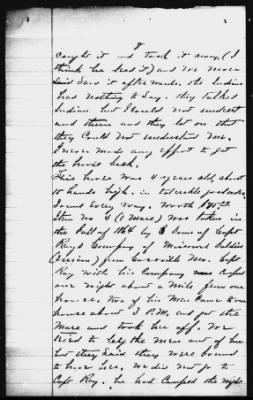 caught it and took it away, (I
think he lead it) and we never
said saw it afterwards. the Indians
had nothing to say. they talked
Indian but I could not underst
and them and they let on that
they could not understand me.
I never made any effort to get
the horse back.
This horse was 4 years old, about
15 hands high. in tolerable good order.
Sound every way. Worth
Item No 4 (1 Mare) was taken in
the Fall of 1864 by some of Capt
Rays Company of Missouri Soldiers
(Union) from Cassville Mo. Capt
Ray with his Company camped
one night about a mile from our
house, two of his Men came to our
house about 3 P.M. and got the
Mare and took her off. We
tried to beg the mare out of her
but they said they were bound
to have her. We did not go to
Capt Ray. he had camped the night